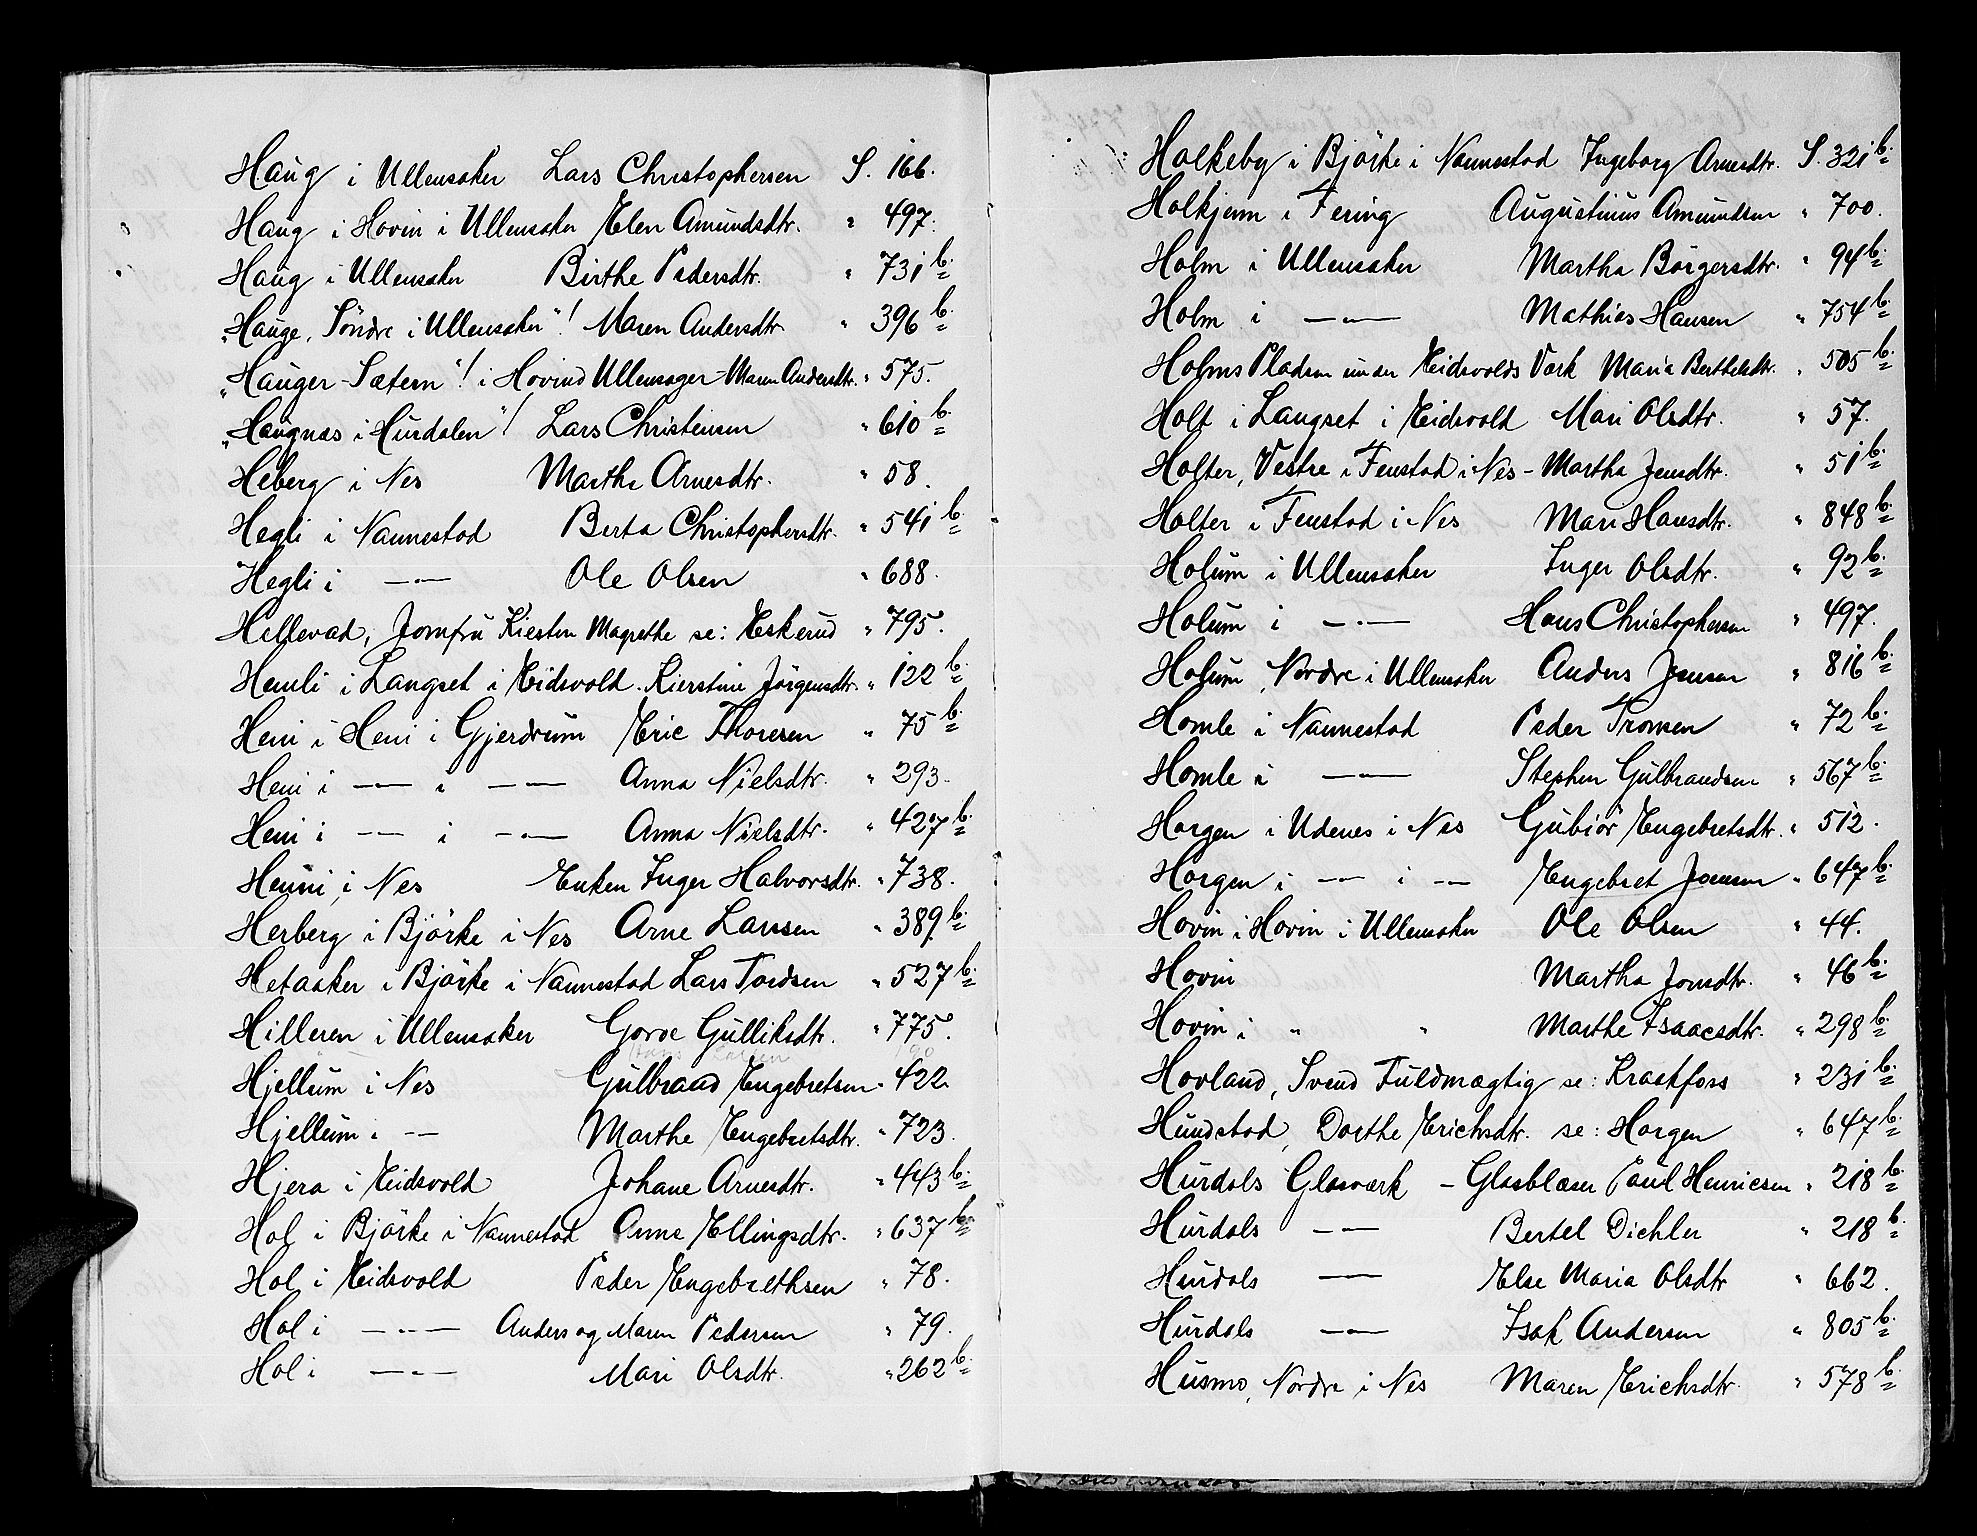 Haug i Ullensaker Lars Christophersen S. 166.
Haug i Hovin i Ullensaker Elen Amundsdtr. " 497.
Haug i Ullensaker Birthe Pedersdtr. " 731 b.
"Hauge, Söndre i Ullensaker"! Maren Andersdtr " 396 b.
"Hauger-Sætern"! i Hovind Ullensager - Maren Andersdtr. " 575.
"Haugnæs i Hurdalen"! Lars Christensen " 610 b.
Heberg i Nes Marthe Arnesdtr. " 58.
Hegli i Nannestad Berta Christophersdtr. " 541 b.
Hegli i —"— Ole Olsen " 688.
Hellevad, Jomfru Kiesten Magrethe se: Eskerud " 795.
Hemli i Langset i Eidsvold. Kierstine Jörgensdtr. " 122 b.
Heni i Heni i Gjerdrum Eric Thoresen " 75 b.
Heni i —"— i —"— Anna Nielsdtr. " 293.
Heni i —"— i —"— Anna Nielsdtr. " 427 b.
Henni i Nes Enken Inger Halvorsdtr. " 738.
Herberg i Björke i Nes Arne Larssen " 389 b.
Hetaaker i Björke i Nannestad Lars Tordsen " 527 b.
Hilleren i Ullensaker Gorve Gulliksdtr. " 775.
Hjellum i Nes Gulbrand Engebretsen " 422.
Hjellum i — Marthe Engebretsdtr. " 723.
Hjera i Eidsvold Johane Arnesdtr. " 443 b.
Hol i Björke i Nannestad Anne Ellingsdtr. " 637 b.
Hol i Eidsvold Peder Engebrethsen " 78.
Hol i —"— Anders og Maren Pedersen " 79.
Hol i —"— Mari Olsdtr. " 262 b.
Holkeby i Björke i Nannestad Ingeborg Arnesdtr. S. 321 b.
Holkjenn i Fering Augustinus Amundsen " 700.
Holm i Ullensaker Martha Börgersdtr. " 94 b.
Holm i —"— Mathias Hansen " 754 b.
Holms Pladsen under Eidsvolds Værk Maria Bertheldtr. " 505 b.
Holt i Langset i Eidsvold Mari Olsdtr. " 57.
Holter, Vestre i Fenstad i Nes - Martha Jensdtr. " 51 b.
Holter i Fenstad i Nes Mari Hansdtr. " 848 b.
Holum i Ullensaker Inger Olsdtr. " 92 b.
Holum i —"— Hans Christophersen " 497.
Holum, Nordre i Ullensaker Anders Jensen " 816 b.
Homle i Nannestad Peder Tronsen " 72 b.
Homle i —"— Stephen Gulbrandsen " 567 b.
Horgen i Udenes i Nes Gubiör Engebretsdtr. " 512.
Horgen i —"— i —"— Engebret Jensen " 647 b.
Hovin i Hovin i Ullensaker Ole Olsen " 44.
Hovin Martha Jonsdtr. " 46 b.
Hovin i " " Marthe Isaacsdtr. " 298 b.
Hovland, Svend Fuldmægtig se: Kraakfoss " 231 b.
Hundstad, Dorthe Erichsdtr. se: Horgen " 647 b.
Hurdals Glasværk - Glasblæser Paul Henricsen " 218 b.
Hurdals —"— Bertel Dichler " 218 b.
Hurdals —"— Else Maria Olsdtr " 662.
Hurdals —"— Isak Andersen " 805 b.
Husmo, Nordre i Nes Maren Erichsdtr. " 578 b.